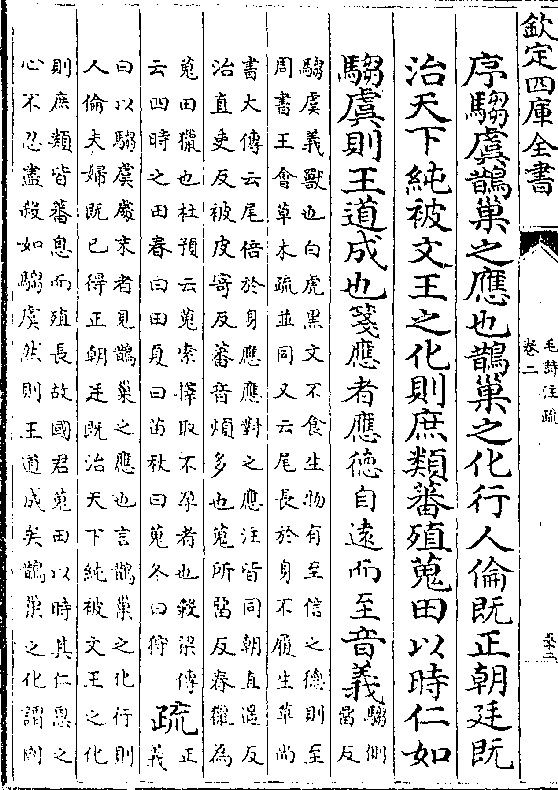 欽定四庫全書
毛詩注疏
卷二
序騶虞鵲巢之應也鵲巢之化行人倫既正朝廷既
治天下純被文王之化則庶類蕃殖蒐田以時仁如
騶虞則王道成也箋應者應德自遠而至音義騶側
畱反
騶虞義獸也白虎黑文不食生物有至信之德則至
周書王會草木疏並同又云尾長於身不履生草尚
書大傳云尾倍於身應應對之應注皆同朝直遙反
治直吏反被皮寄反蕃音煩多也蒐所畱反春獵為
蒐田獵也杜預云蒐索擇取不孕者也穀梁傳
云四時之田春曰田夏曰苗秋曰蒐冬曰狩
疏正
義
曰以騶虞處末者見鵲巢之應也言鵲巢之化行則
人倫夫婦既已得正朝廷既治天下純被文王之化
則庶類皆蕃息而殖長故國君蒐田以時其仁恩之
心不忍盡殺如騶虞然則王道成矣鵲巢之化謂國